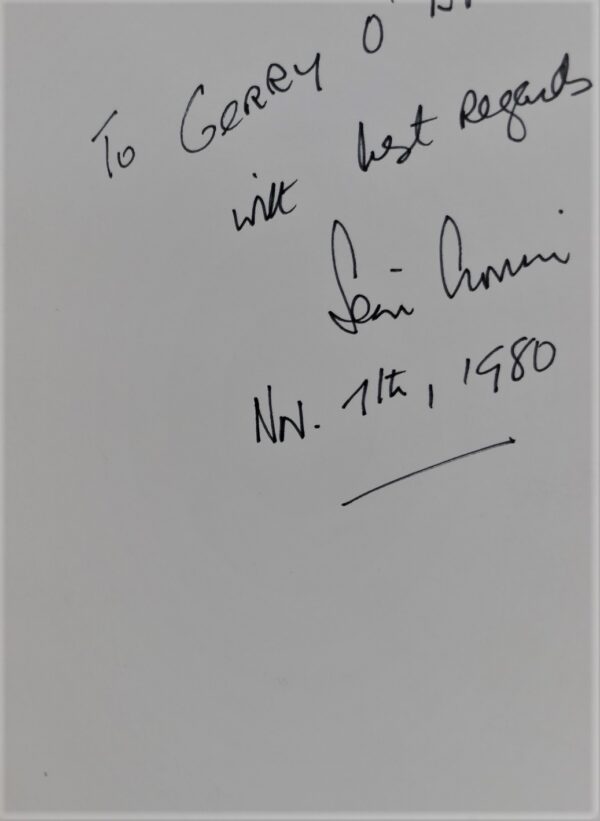 To GERRY O'
with best Regards
Seán Cronin
Nov. 7th, 1980